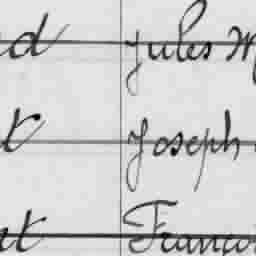 d Jules M
t Joseph
nt Franço